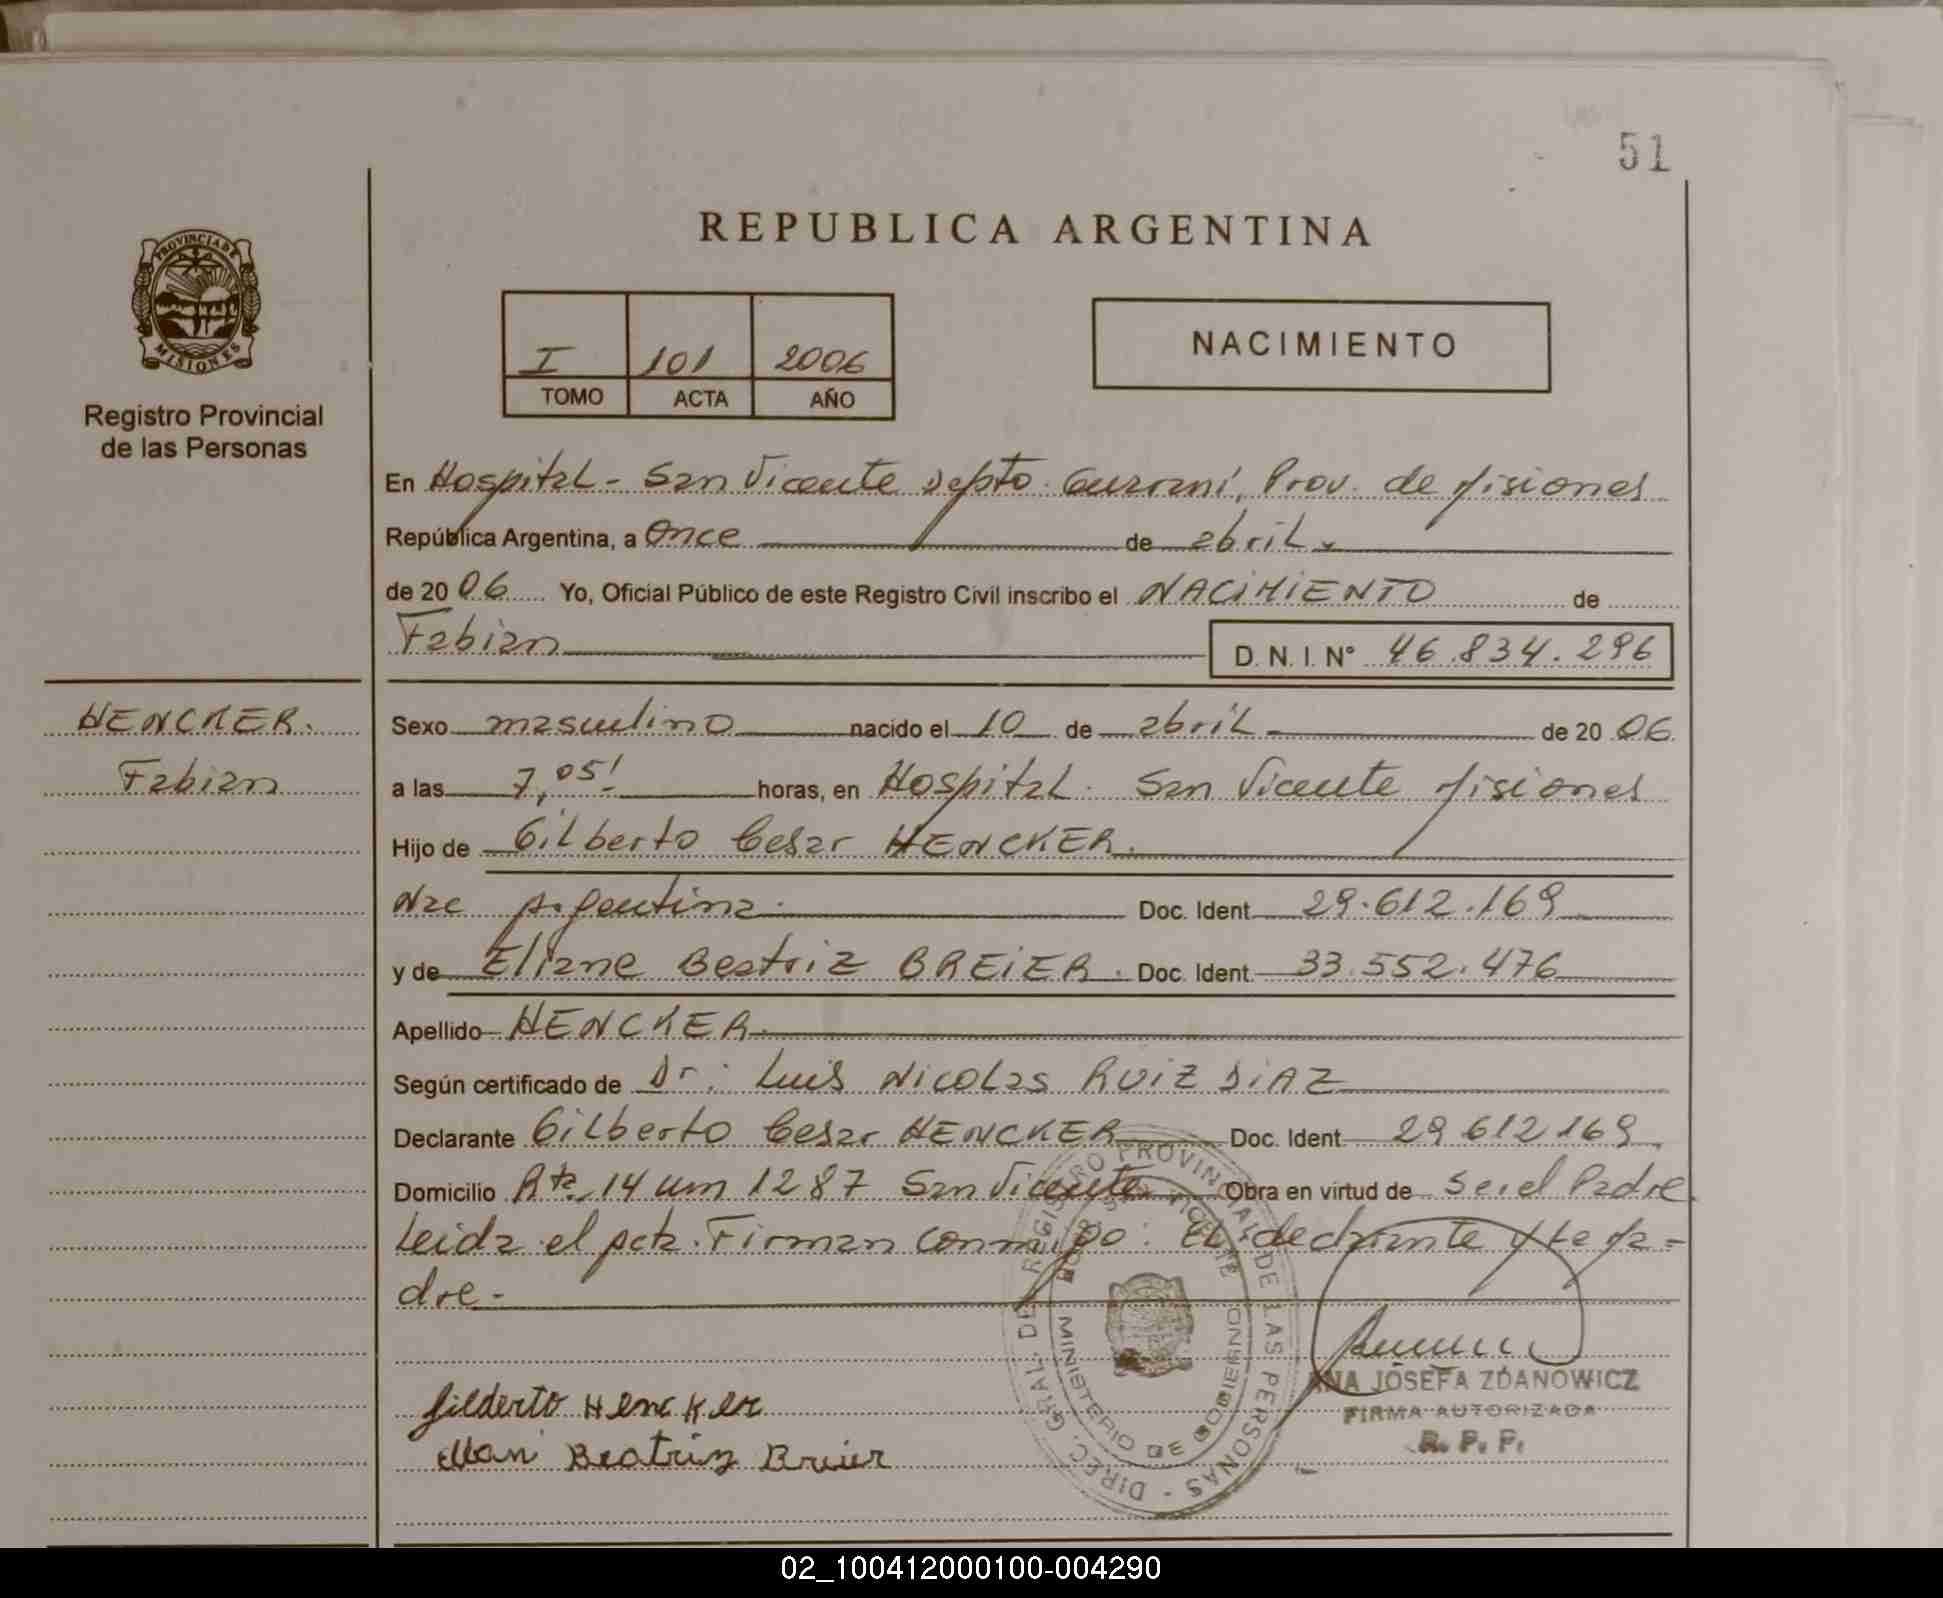 51
REPUBLICA ARGENTINA
PROVINCIA DE MISIONES
Registro Provincial
de las Personas
I 101 2006
TOMO ACTA AÑO
NACIMIENTO
En Hospital - San Vicente Depto. Guaraní, Prov. de Misiones
República Argentina, a Once de abril
de 2006 Yo, Oficial Público de este Registro Civil inscribo el NACIMIENTO de
Fabian D. N. I. Nº 46.834.296
HENCKER.
Fabian
Sexo masculino nacido el 10 de abril de 2006
a las 7,05' horas, en Hospital San Vicente Misiones
Hijo de Gilberto Cesar HENCKER.
Nac Argentina. Doc. Ident. 29.612.169
y de Eliane Beatriz BREIER. Doc. Ident. 33.552.476
Apellido HENCKER.
Según certificado de Dr: Luis Nicolas RUIZ DIAZ
Declarante Gilberto Cesar HENCKER Doc. Ident 29 612 169
Domicilio Rta. 14 km 1287 San Vicente Obra en virtud de ser el Padre
Leida el acta. Firman conmigo: El declarante y la Ma-
dre-
Gilderto Hencker
Beatriz Breier
DIREC. GRAL. DE REGISTRO PROVINCIAL DE LAS PERSONAS
MINISTERIO DE GOBIERNO
ANA JOSEFA ZDANOWICZ
FIRMA AUTORIZADA
R. P. P.
02_100412000100-004290